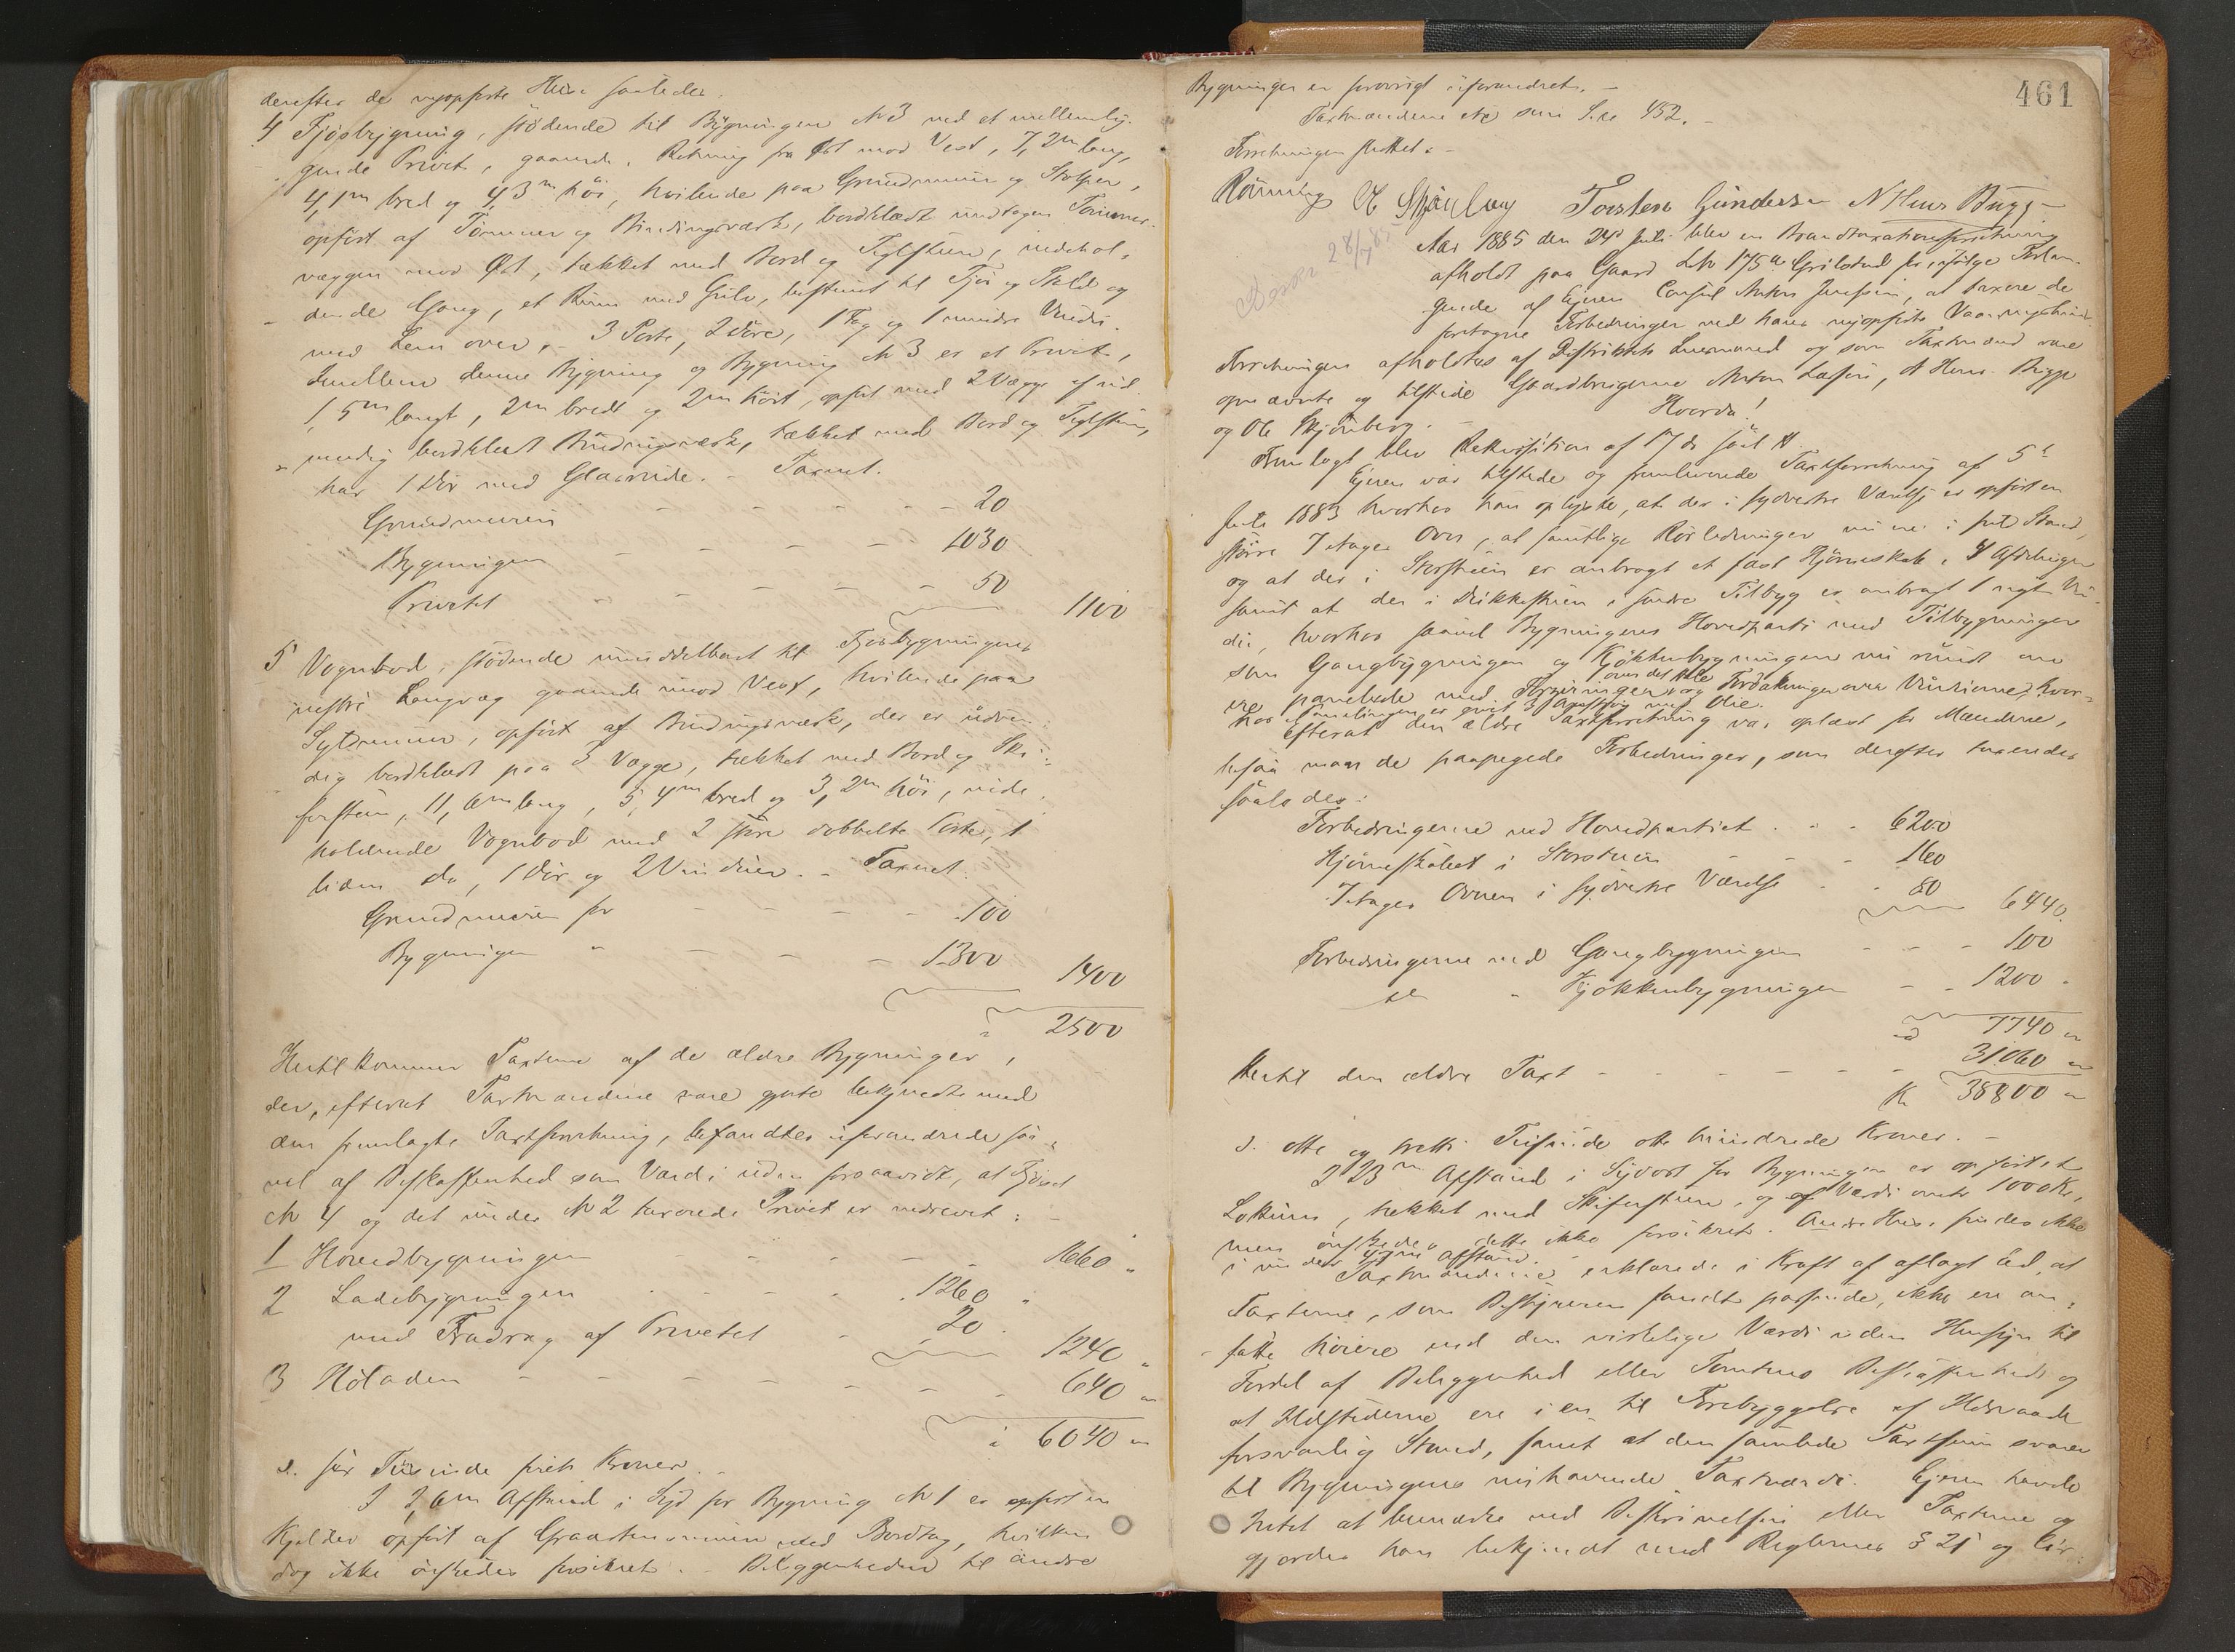 derefter de nyopførte Huse saaledes:
4 Fjøsbygning, stødende til Bygningen N 3 med et mellemlig-
gende Privet, gaaende i Retning fra Øst mod Vest, 7,2m lang,
4,1m bred og 4,3m høi, hvilende paa Grundmuur og Stolper,
opført af Tømmer og Bindingsværk, bordklædt undtagen Tømmer-
væggen mod Øst, tækket med Bord og Teglsteen, indehol-
dende Gang, et Rum med Gulv, bestemt til Fjøs og Stald og
med Lem over. 3 Porte, 2 Døre, 1 Fag og 1 mindre Vindu.
Imellem denne Bygning og Bygning N 3 er et Privet,
1,5m langt, 2m bredt og 2m høit, opført med 2 Vægge af ud-
vendig bordklædt Bindingsværk, tækket med Bord og Teglsteen,
har 1 Dør med Glasrude. - Taxeret.
Grundmuren - - - - - 20
Bygningen - - - - 1030
Privetet - - - - 50
1100
5 Vognbod, stødende umiddelbart til Fjøsbygningens
vestre Langvæg gaaende mod Vest, hvilende paa
Syldmuur, opført af Bindingsværk, der er udven-
dig bordklædt paa 3 Vægge, tækket med Bord og Ski-
fersteen, 11,6m lang, 5,4m bred og 3,2m høi, inde-
holdende Vognbod med 2 større dobbelte Porte, 1
liden do, 1 Dør og 2 Vinduer. - Taxeret.
Grundmuren for - - - - 100
Bygningen " - - - 1300
1400
2500
Hertil kommer Taxterne af de ældre Bygninger,
der, efterat Taxtmændene vare gjorte bekjendte med
den fremlagte Taxtforretning, befandtes uforandrede saa-
vel af Beskaffenhed som Værdi uden forsaavidt, at Fjøset
N 4 og det under N 2 taxerede Privet er nedrevet: -
1 Hovedbygningen - - - 1660 "
2 Ladebygningen - - - 1260 "
med Fradrag af Privetet - 20
1240 "
3 Høladen - - - - - - 640 "
6040 "
s. sex Tusinde firti Kroner.
I 2,6m Afstand i Syd for Bygning N 1 er opført en
Kjelder opført af Graastensmuur med Bordtag, hvilken
dog ikke ønskedes forsikret. - Beliggenheden til andre
461
Bygninger er forøvrigt uforandret. -
Taxtmændene etc som S. 452. -
Forretningen sluttet. -
Rønning O Skjønberg Torsten Gundersen N Hens Bugge
Aar 1885 den 24d Juli blev en Brandtaxationsforretning
afholdt paa Gaard L N 175a Grilstad for, ifølge Forlan-
gende af Ejeren Consul Anton Jenssen, at taxere de
foretagne Forbedringer ved hans nyopførte Vaaningshus.
Forretningen afholdtes af Distriktets Lensmand og som Taxtmænd vare
opnævnte og tilstede Gaardbrugerne Anton Lassen, N Hens Bugge
og Ole Skjønberg. -
Hvorda!
Fremlagt blev Rekvisition af 17 ds
Ejeren var tilstede og fremleverede Taxtforretning af 5t
Juli 1883 hvorhos han oplyste, at der i sydvestre Værelse er opført en
større 7 Etages Ovn, at samtlige Rørledninger nu ere i fuld Stand,
og at der i Storstuen er anbragt et fast Hjørneskab i 4 Afdelinger
samt at der i Drikkestuen i søndre Tilbyg er anbragt 1 nyt Vin-
du, hvorhos saavel Bygningens Hovedparti med Tilbygninger
som Gangbygningen og Kjøkkenbygningen nu rundt om
ere panelede med Forziringer over det Hele og Fordakninger over Vinduerne, hvor-
hos Panelingen er givet 3 Paastrøg med Olie.
Efterat den ældre Taxtforretning var oplæst for Mændene,
besaa man de paapegede Forbedringer, som derefter taxeredes
saaledes:
Forbedringerne ved Hovedpartiet - - - 6200
Hjørneskabet i Storstuen - - - 160
7 Etages Ovnen i sydvestre Værelse - - 80
6440.
Forbedringerne ved Gangbygningen - - - 100
do " Kjøkkenbygningen - - 1200 -
7740 "
Hertil den ældre Taxt - - - - - - 31060 "
Kr 38800 "
s. otte og tretti Tusinde otte hundrede Kroner. -
I 23m Afstand i Sydost for Bygningen er opført et
Lokum, tækket med Skifersteen, og af Værdi under 1000 Kr,
men ønskedes dette ikke forsikret. Andre Huse findes ikke
i mindre Afstand. -
Taxtmændene erklærede i Kraft af aflagt Ed, at
Taxterne, som Bestyreren fandt passende, ikke ere an-
satte høiere end den virkelige Værdi uden Hensyn til
Fordel af Beliggenhed eller Tomtens Beskaffenhed og
at Ildstederne ere i en til Forebyggelse af Ildsvaade
forsvarlig Stand, samt at den samlede Taxtsum svarer
til Bygningens nuhavende Taxtværdi. Ejeren havde
Intet at bemærke ved Beskrivelsen eller Taxterne og
gjordes han bekjendt med Reglernes § 21 og Cir-